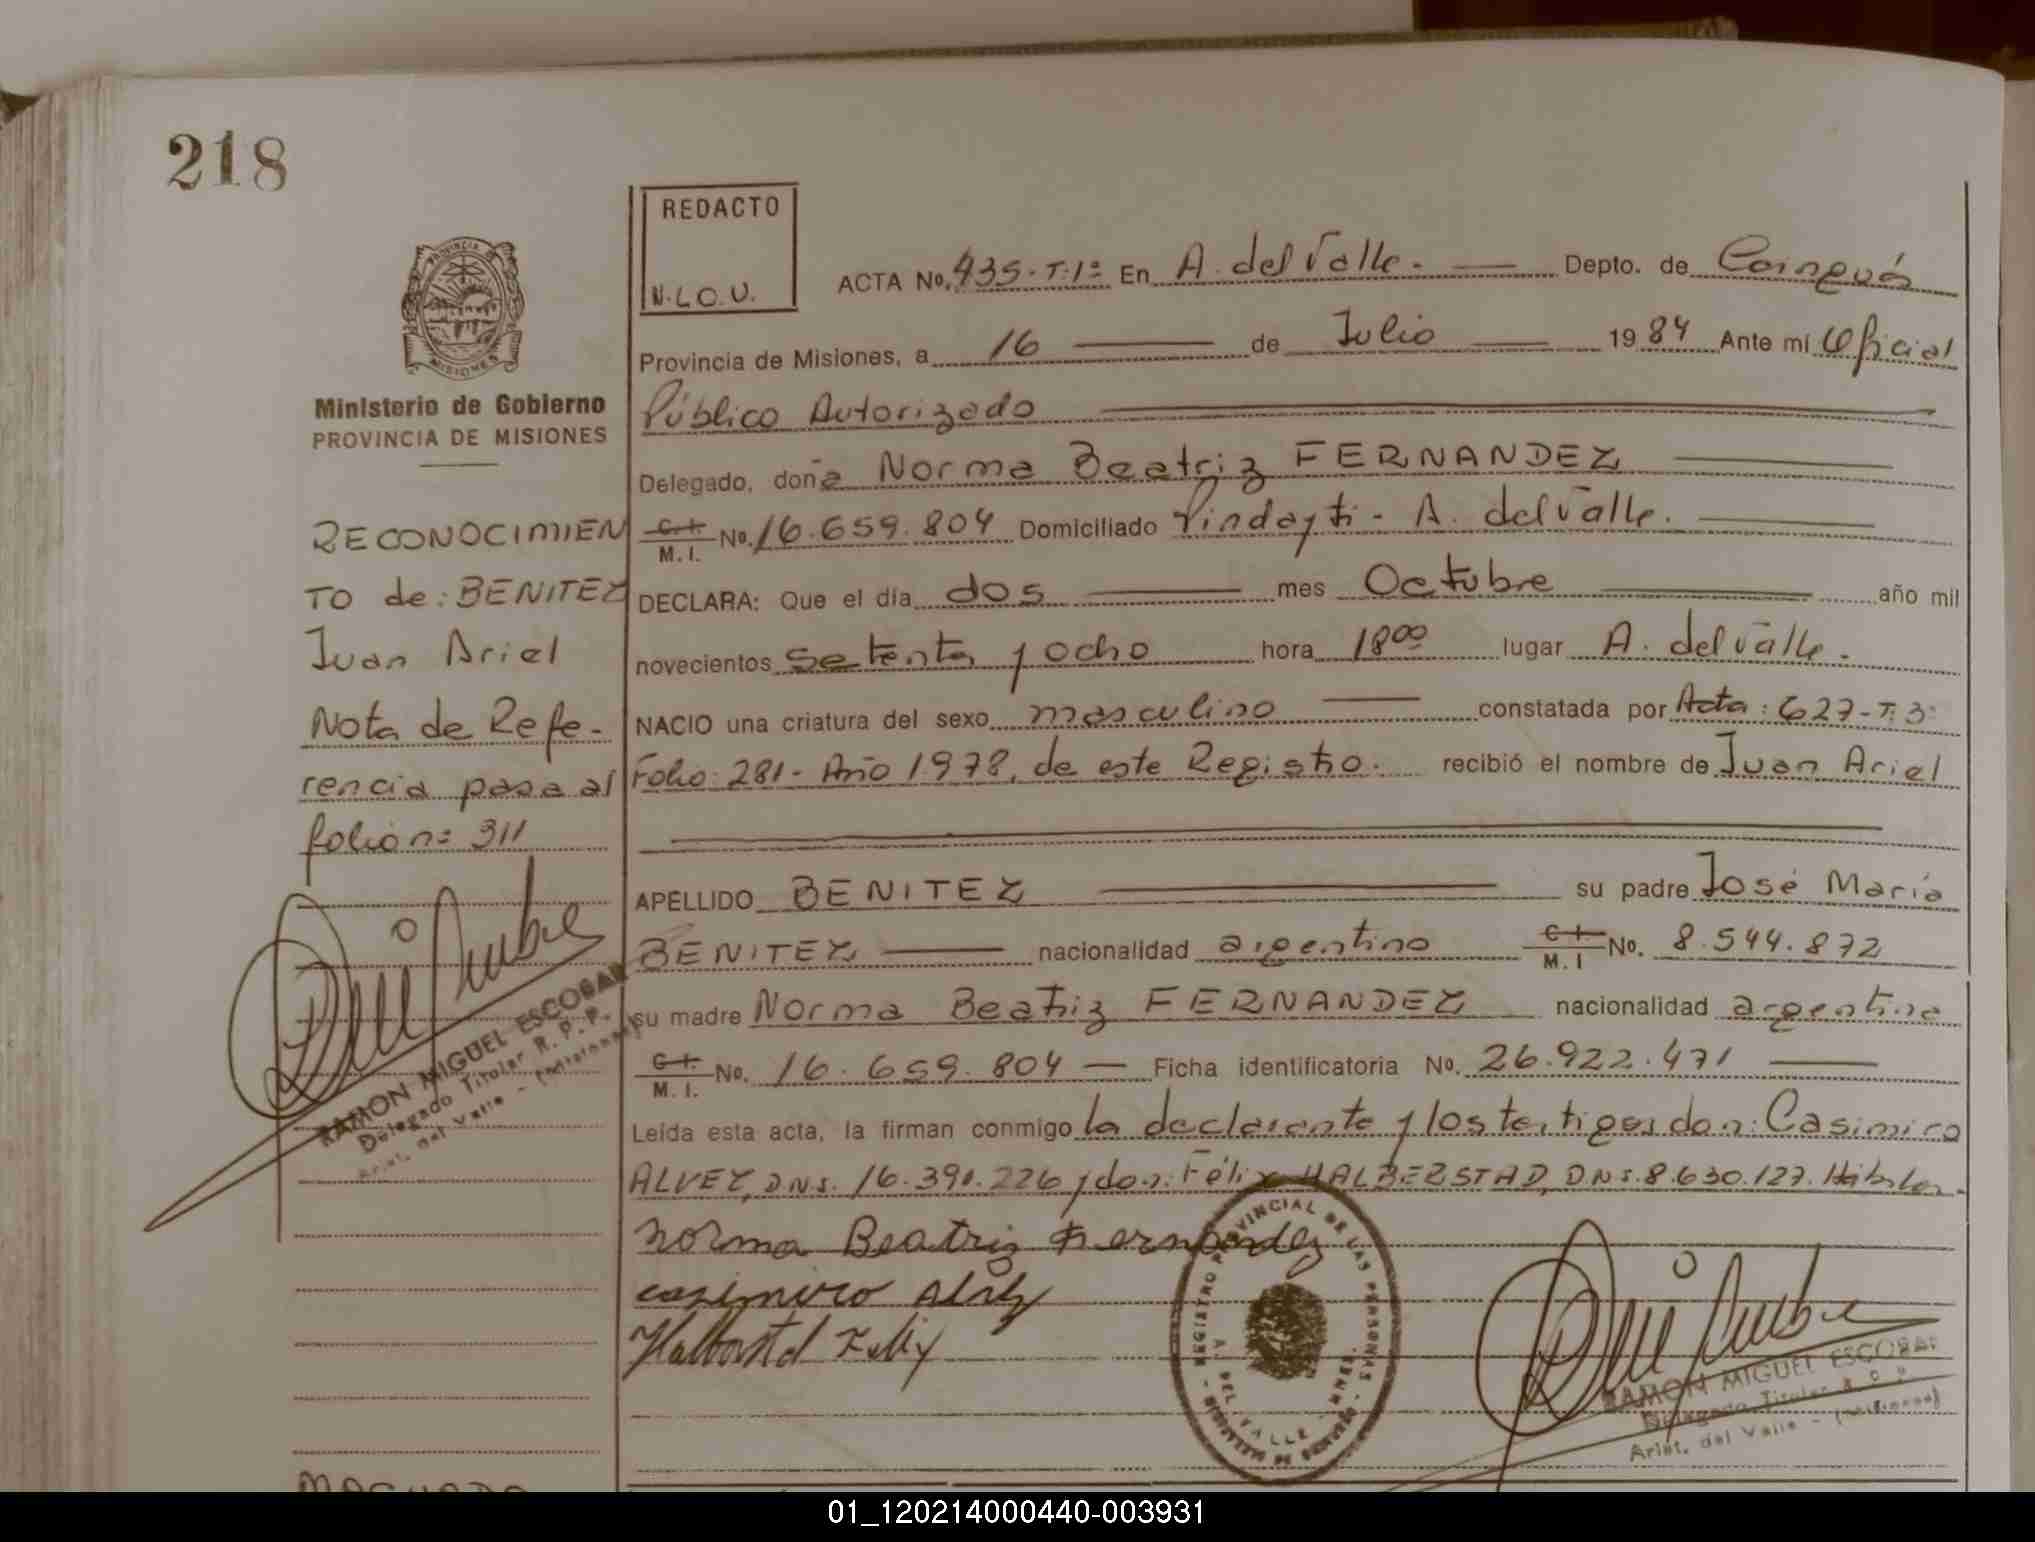 218
REDACTO
N.L.O.U.
ACTA No. 435-T:1º En A. del Valle. Depto. de Cainguás
Provincia de Misiones, a 16 de Julio 1984 Ante mí Oficial
Público Autorizado
Delegado, doña Norma Beatriz FERNANDEZ
C.I. M.I. No. 16.659.804 Domiciliado Pindayti - A. del Valle.
DECLARA: Que el día dos mes Octubre año mil
novecientos setenta y ocho hora 18⁰⁰ lugar A. del Valle.
NACIO una criatura del sexo masculino constatada por Acta: 627-T:3º
Folio: 281- Año 1978, de este Registro. recibió el nombre de Juan Ariel
APELLIDO BENITEZ su padre José María
BENITEZ nacionalidad argentino C.I. M.I No. 8.544.872
su madre Norma Beatriz FERNANDEZ nacionalidad argentina
C.I. M.I. No. 16.659.804 Ficha identificatoria No. 26.922.471
Leída esta acta, la firman conmigo la declarante y los testigos don: Casimiro
ALVEZ, D.N.I. 16.390.226 y don: Félix HALBERSTAD, D.N.I. 8.630.127. Hábiles.
Norma Beatriz Fernandez
casimiro Alvez
Felix
PROVINCIA
MISIONES
Ministerio de Gobierno
PROVINCIA DE MISIONES
RECONOCIMIEN
TO de: BENITEZ
Juan Ariel
Nota de Refe-
rencia pasa al
folio nº 311
RAMON MIGUEL ESCOBAR
Delegado Titular R.P.P.
Arist. del Valle - (Misiones)
REGISTRO PROVINCIAL DE LAS PERSONAS
A. DEL VALLE
RAMON MIGUEL ESCOBAR
Delegado Titular R.P.P.
Arist. del Valle - (Misiones)
01_120214000440-003931